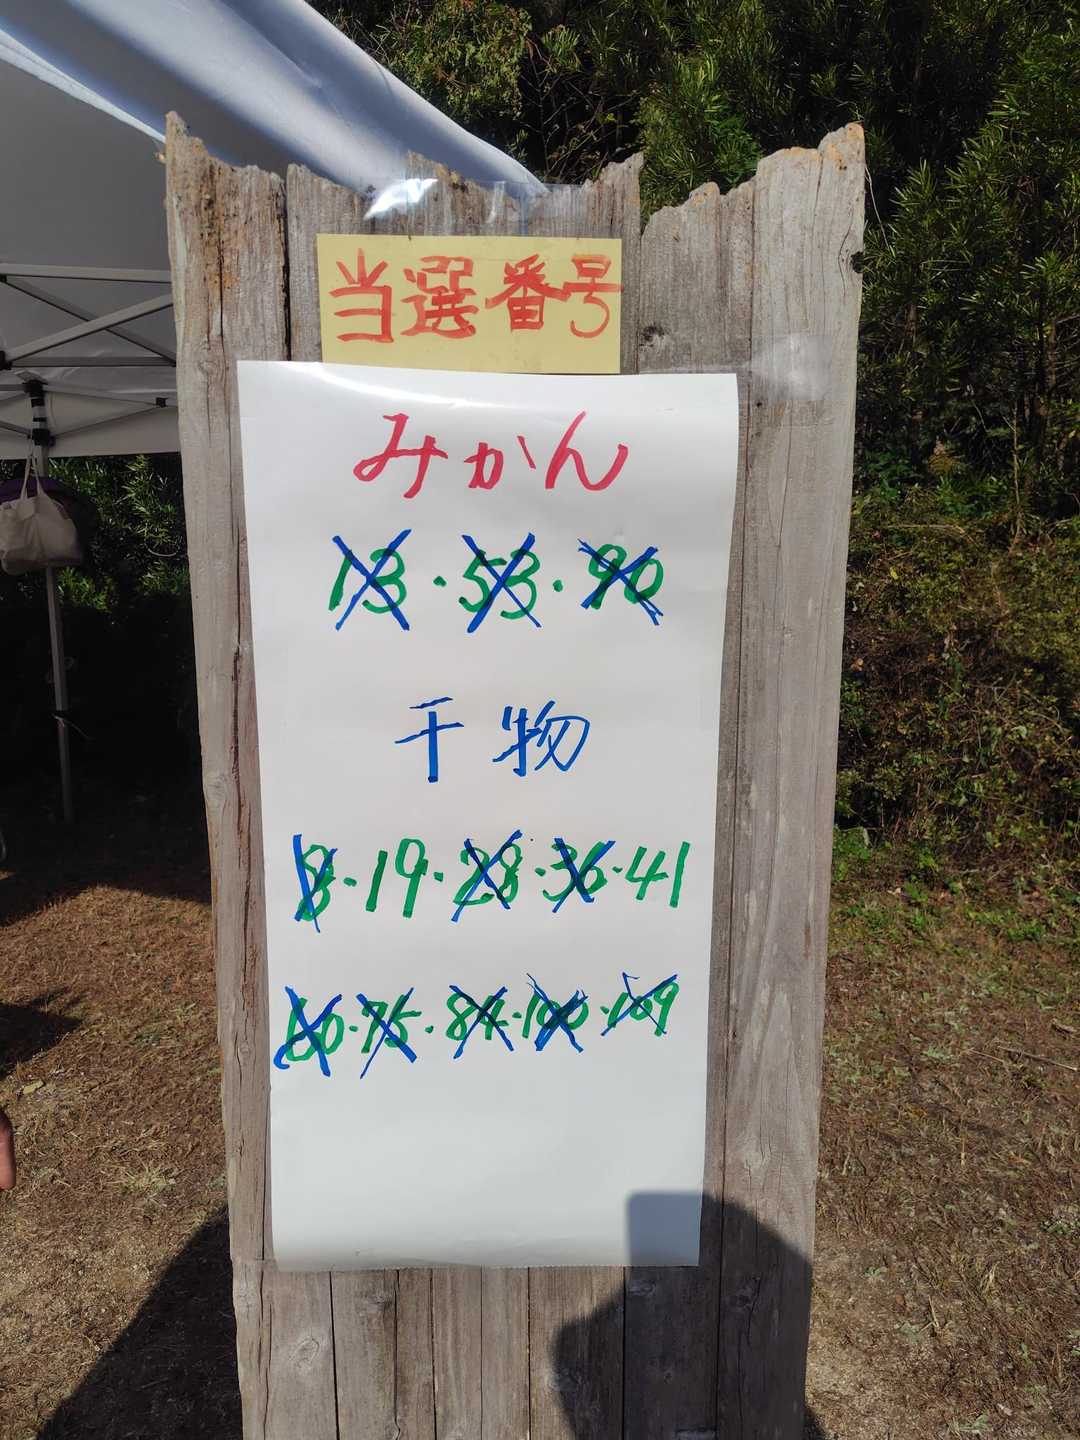 当選番号
みかん
13・53・90
干物
8・19・28・36・41
60・75・84・100・109